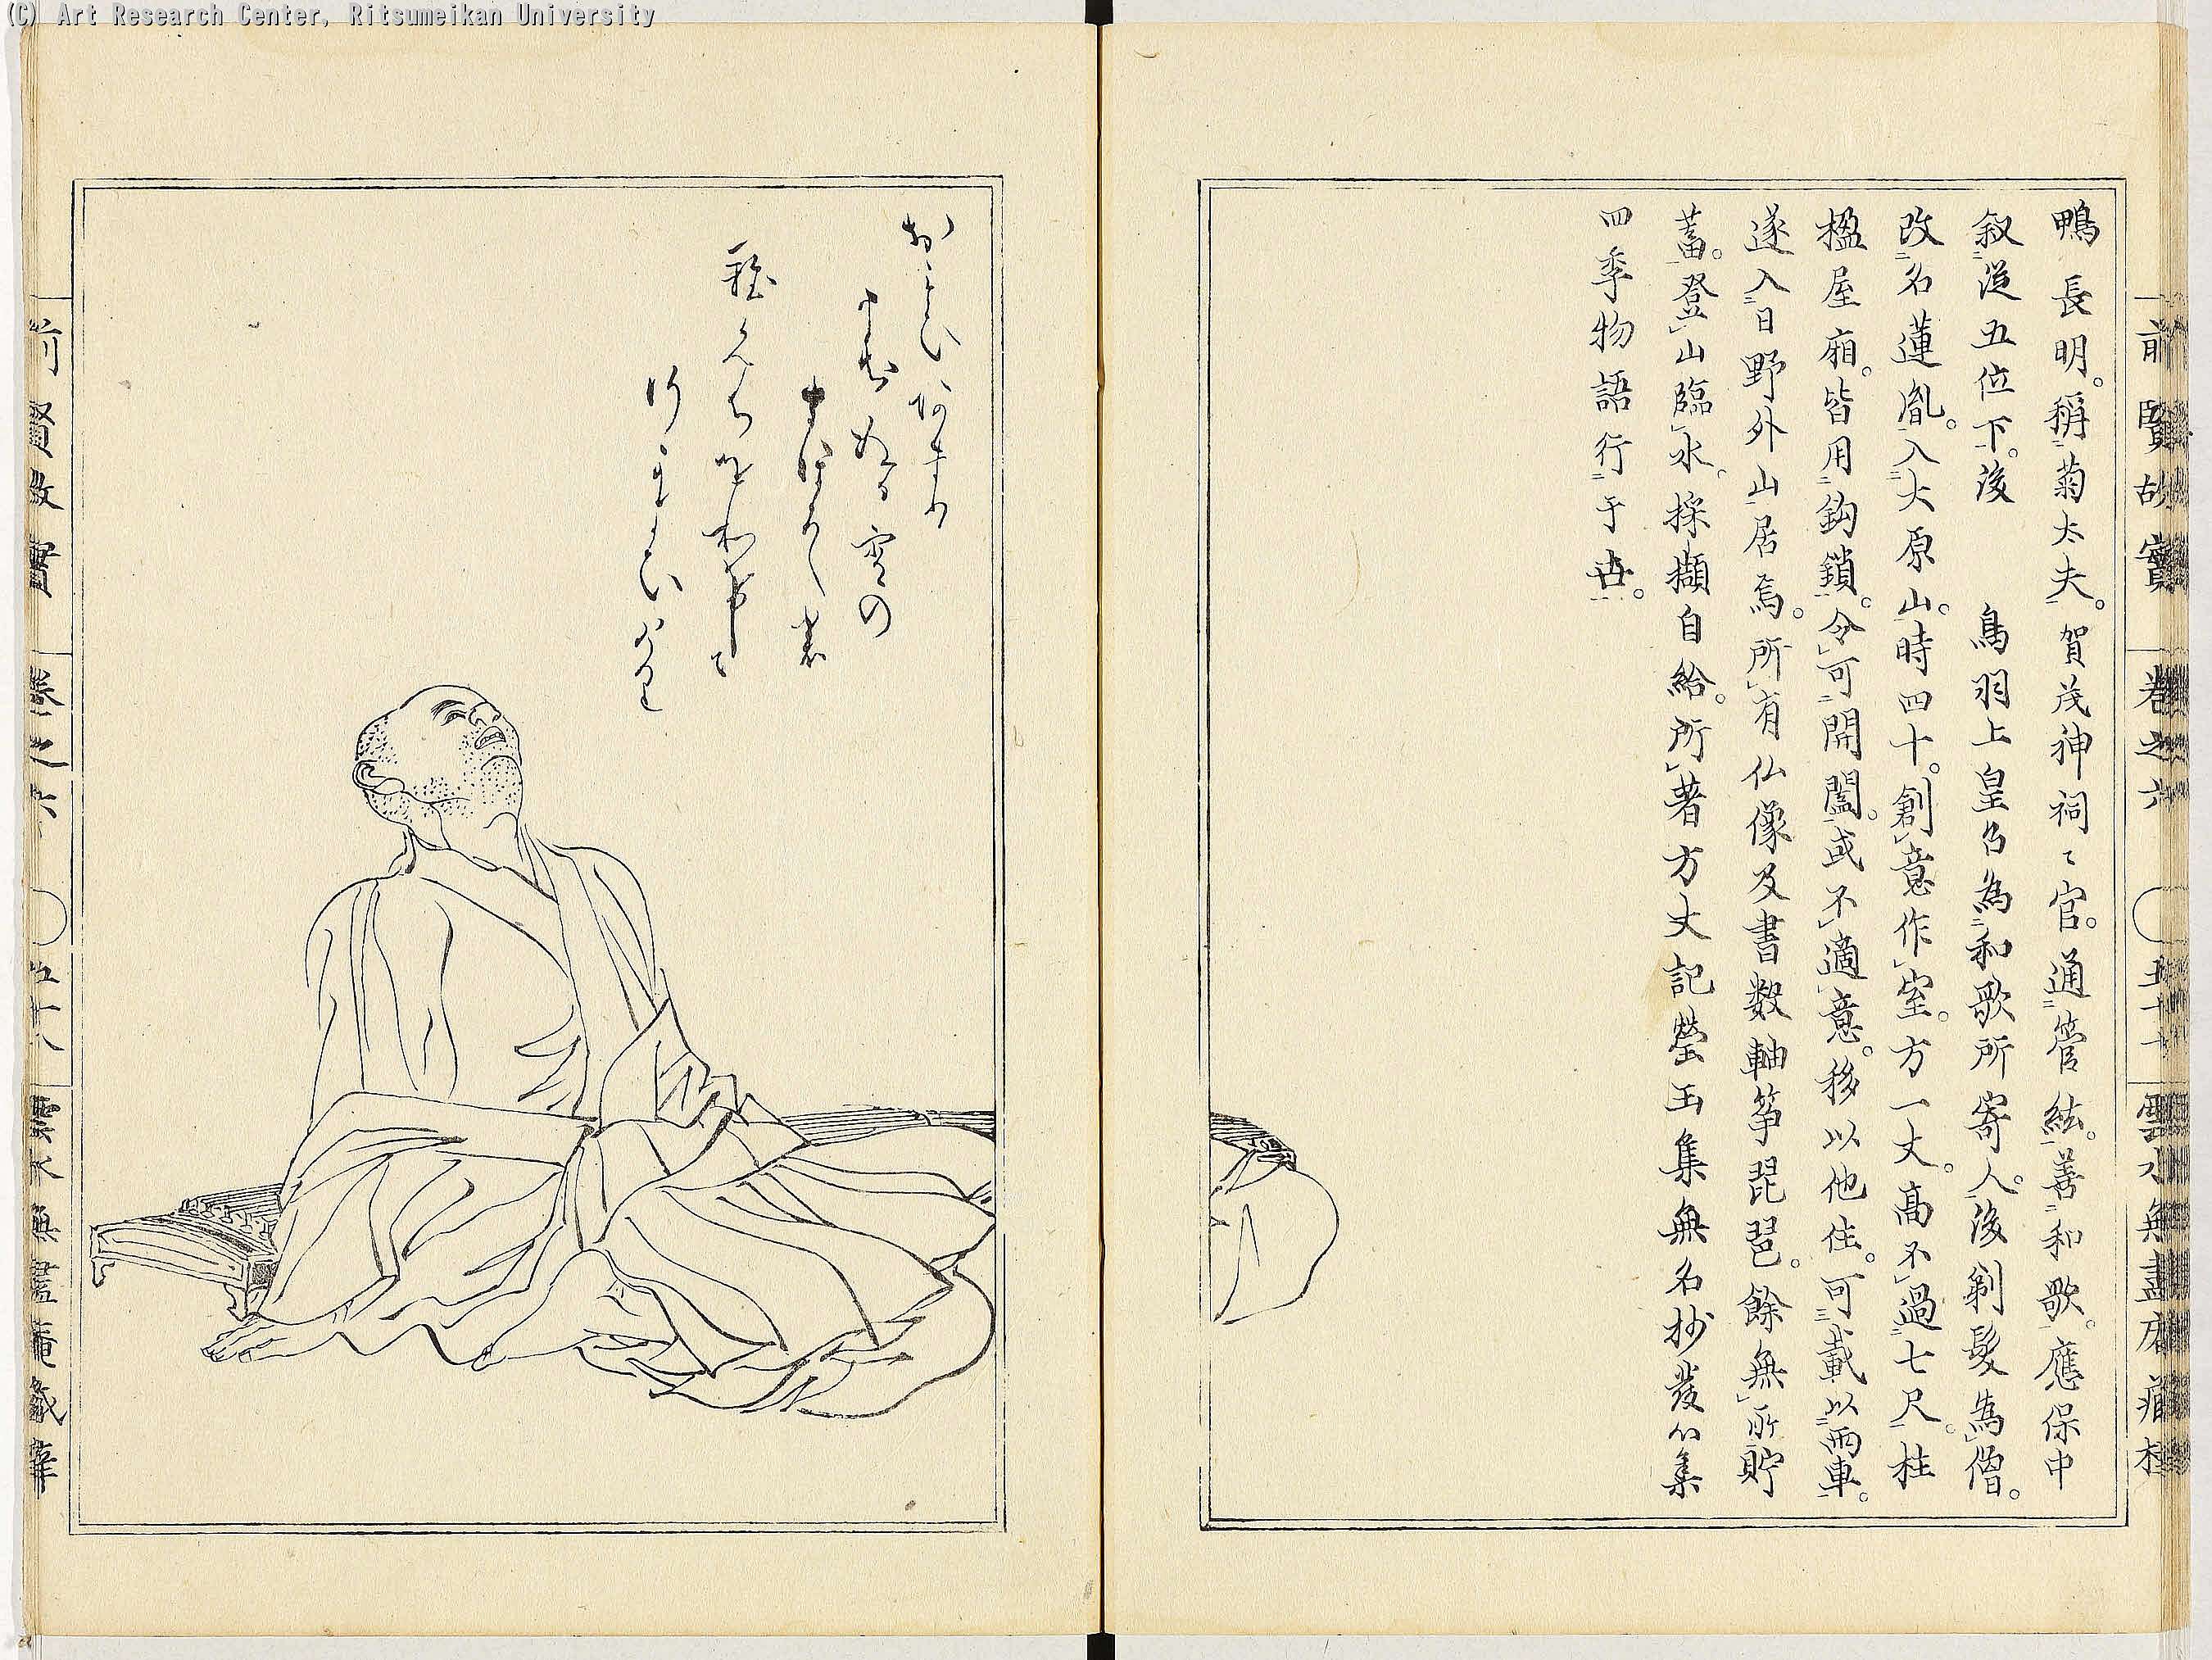 (C) Art Research Center, Ritsumeikan University
前賢故實 卷之六 雲水無盡庵藏
鴨長明。稱菊太夫。賀茂神祠〻官。通管絃。善和歌。應保中
叙従五位下。後 鳥羽上皇召為和歌所寄人。後剃髮為僧。
改名蓮胤。入大原山。時四十。創意作室。方一丈。高不過七尺。柱
楹屋廂。皆用鈎鎖。令可開闔。或不適意。移以他住。可載以兩車。
遂入日野外山居焉。所有仏像及書数軸箏琵琶。餘無所貯
蓄。登山臨水。採擷自給。所著方丈記瑩玉集無名抄發心集
四季物語行于世。
おもひあまり
うちぬる宵の
まほろし
ちをわけて
行かよひけり
前賢故實 卷之六 雲水無盡庵藏